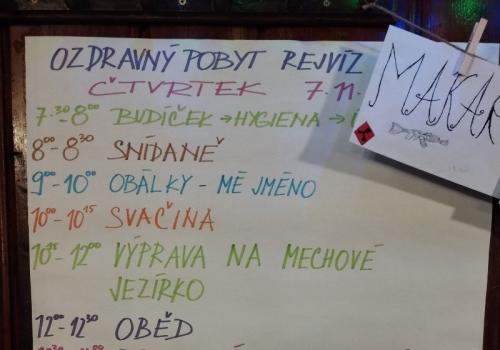 OZDRAVNÝ POBYT REJVÍZ
ČTVRTEK 7.11.
7³⁰-8⁰⁰ BUDÍČEK →HYGIENA →
8⁰⁰-8³⁰ SNÍDANĚ
9⁰⁰-10⁰⁰ OBÁLKY - MÉ JMÉNO
10⁰⁰-10¹⁵ SVAČINA
10¹⁵-12⁰⁰ VÝPRAVA NA MECHOVÉ
JEZÍRKO
12⁰⁰-12³⁰ OBĚD